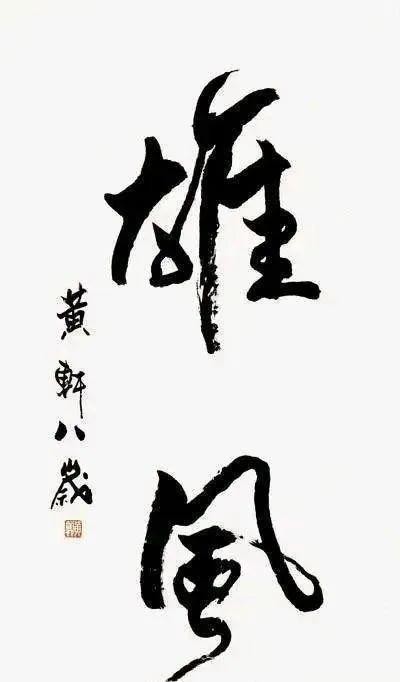 雄風
黃軒八歲